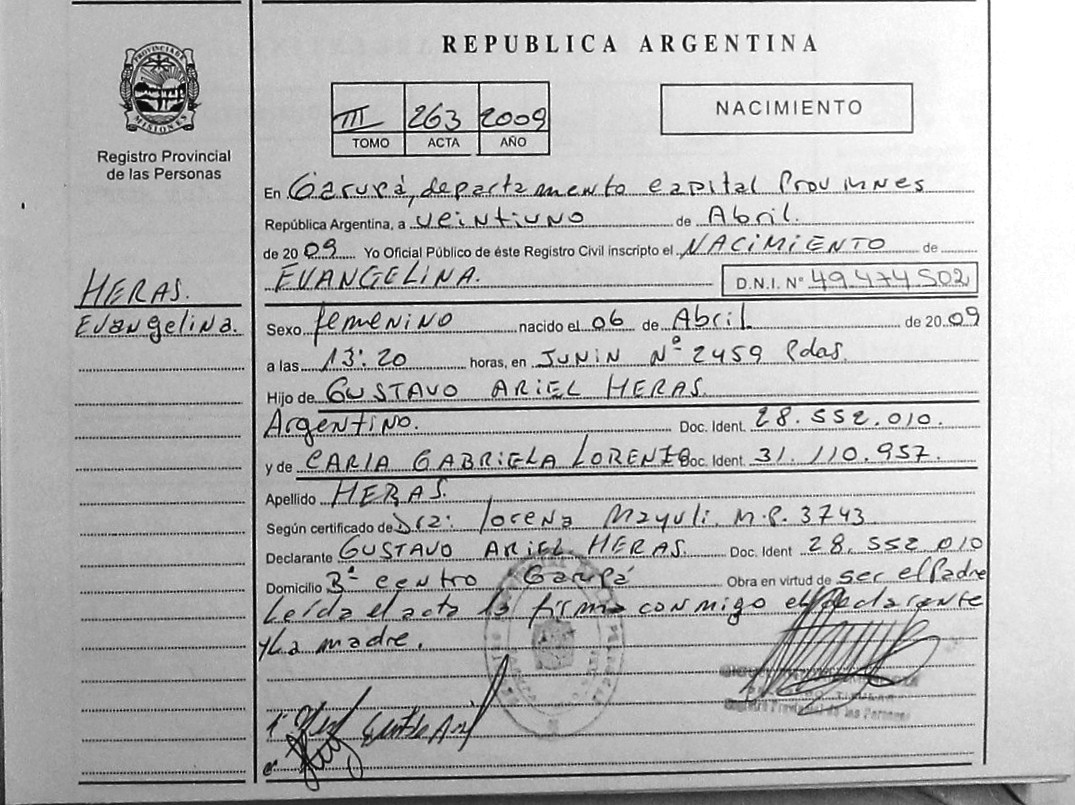 REPUBLICA ARGENTINA
PROVINCIA DE MISIONES
Registro Provincial
de las Personas
III 263 2009
TOMO ACTA AÑO
NACIMIENTO
En Garupá, departamento capital Prov
República Argentina, a veintiuno de Abril.
de 2009 Yo Oficial Público de éste Registro Civil inscripto el NACIMIENTO de
EVANGELINA. D.N.I. N° 49.474.502
HERAS.
Evangelina.
Sexo femenino nacido el 06 de Abril de 2009
a las 13:20 horas, en JUNIN N° 2459 Pdas.
Hijo de GUSTAVO ARIEL HERAS.
Argentino. Doc. Ident. 28.552.010.
y de CARLA GABRIELA LORENZO Doc. Ident. 31.110.957.
Apellido HERAS.
Según certificado de Dra: lorena Mayuli. M.P. 3743
Declarante GUSTAVO ARIEL HERAS. Doc. Ident 28.552.010
Domicilio B° centro Garupá Obra en virtud de ser el Padre
Leída el acta la firma conmigo el declarante
y La madre.
Registro Provincial de las Personas